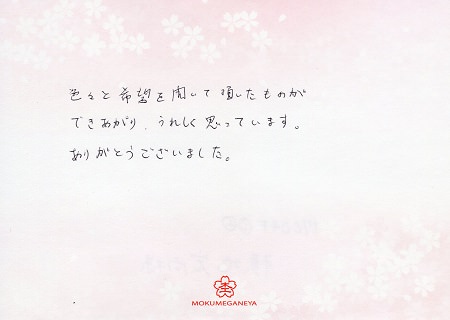 色々と希望を聞いて頂いたものが
できあがり、うれしく思っています。
ありがとうございました。
MOKUMEGANEYA